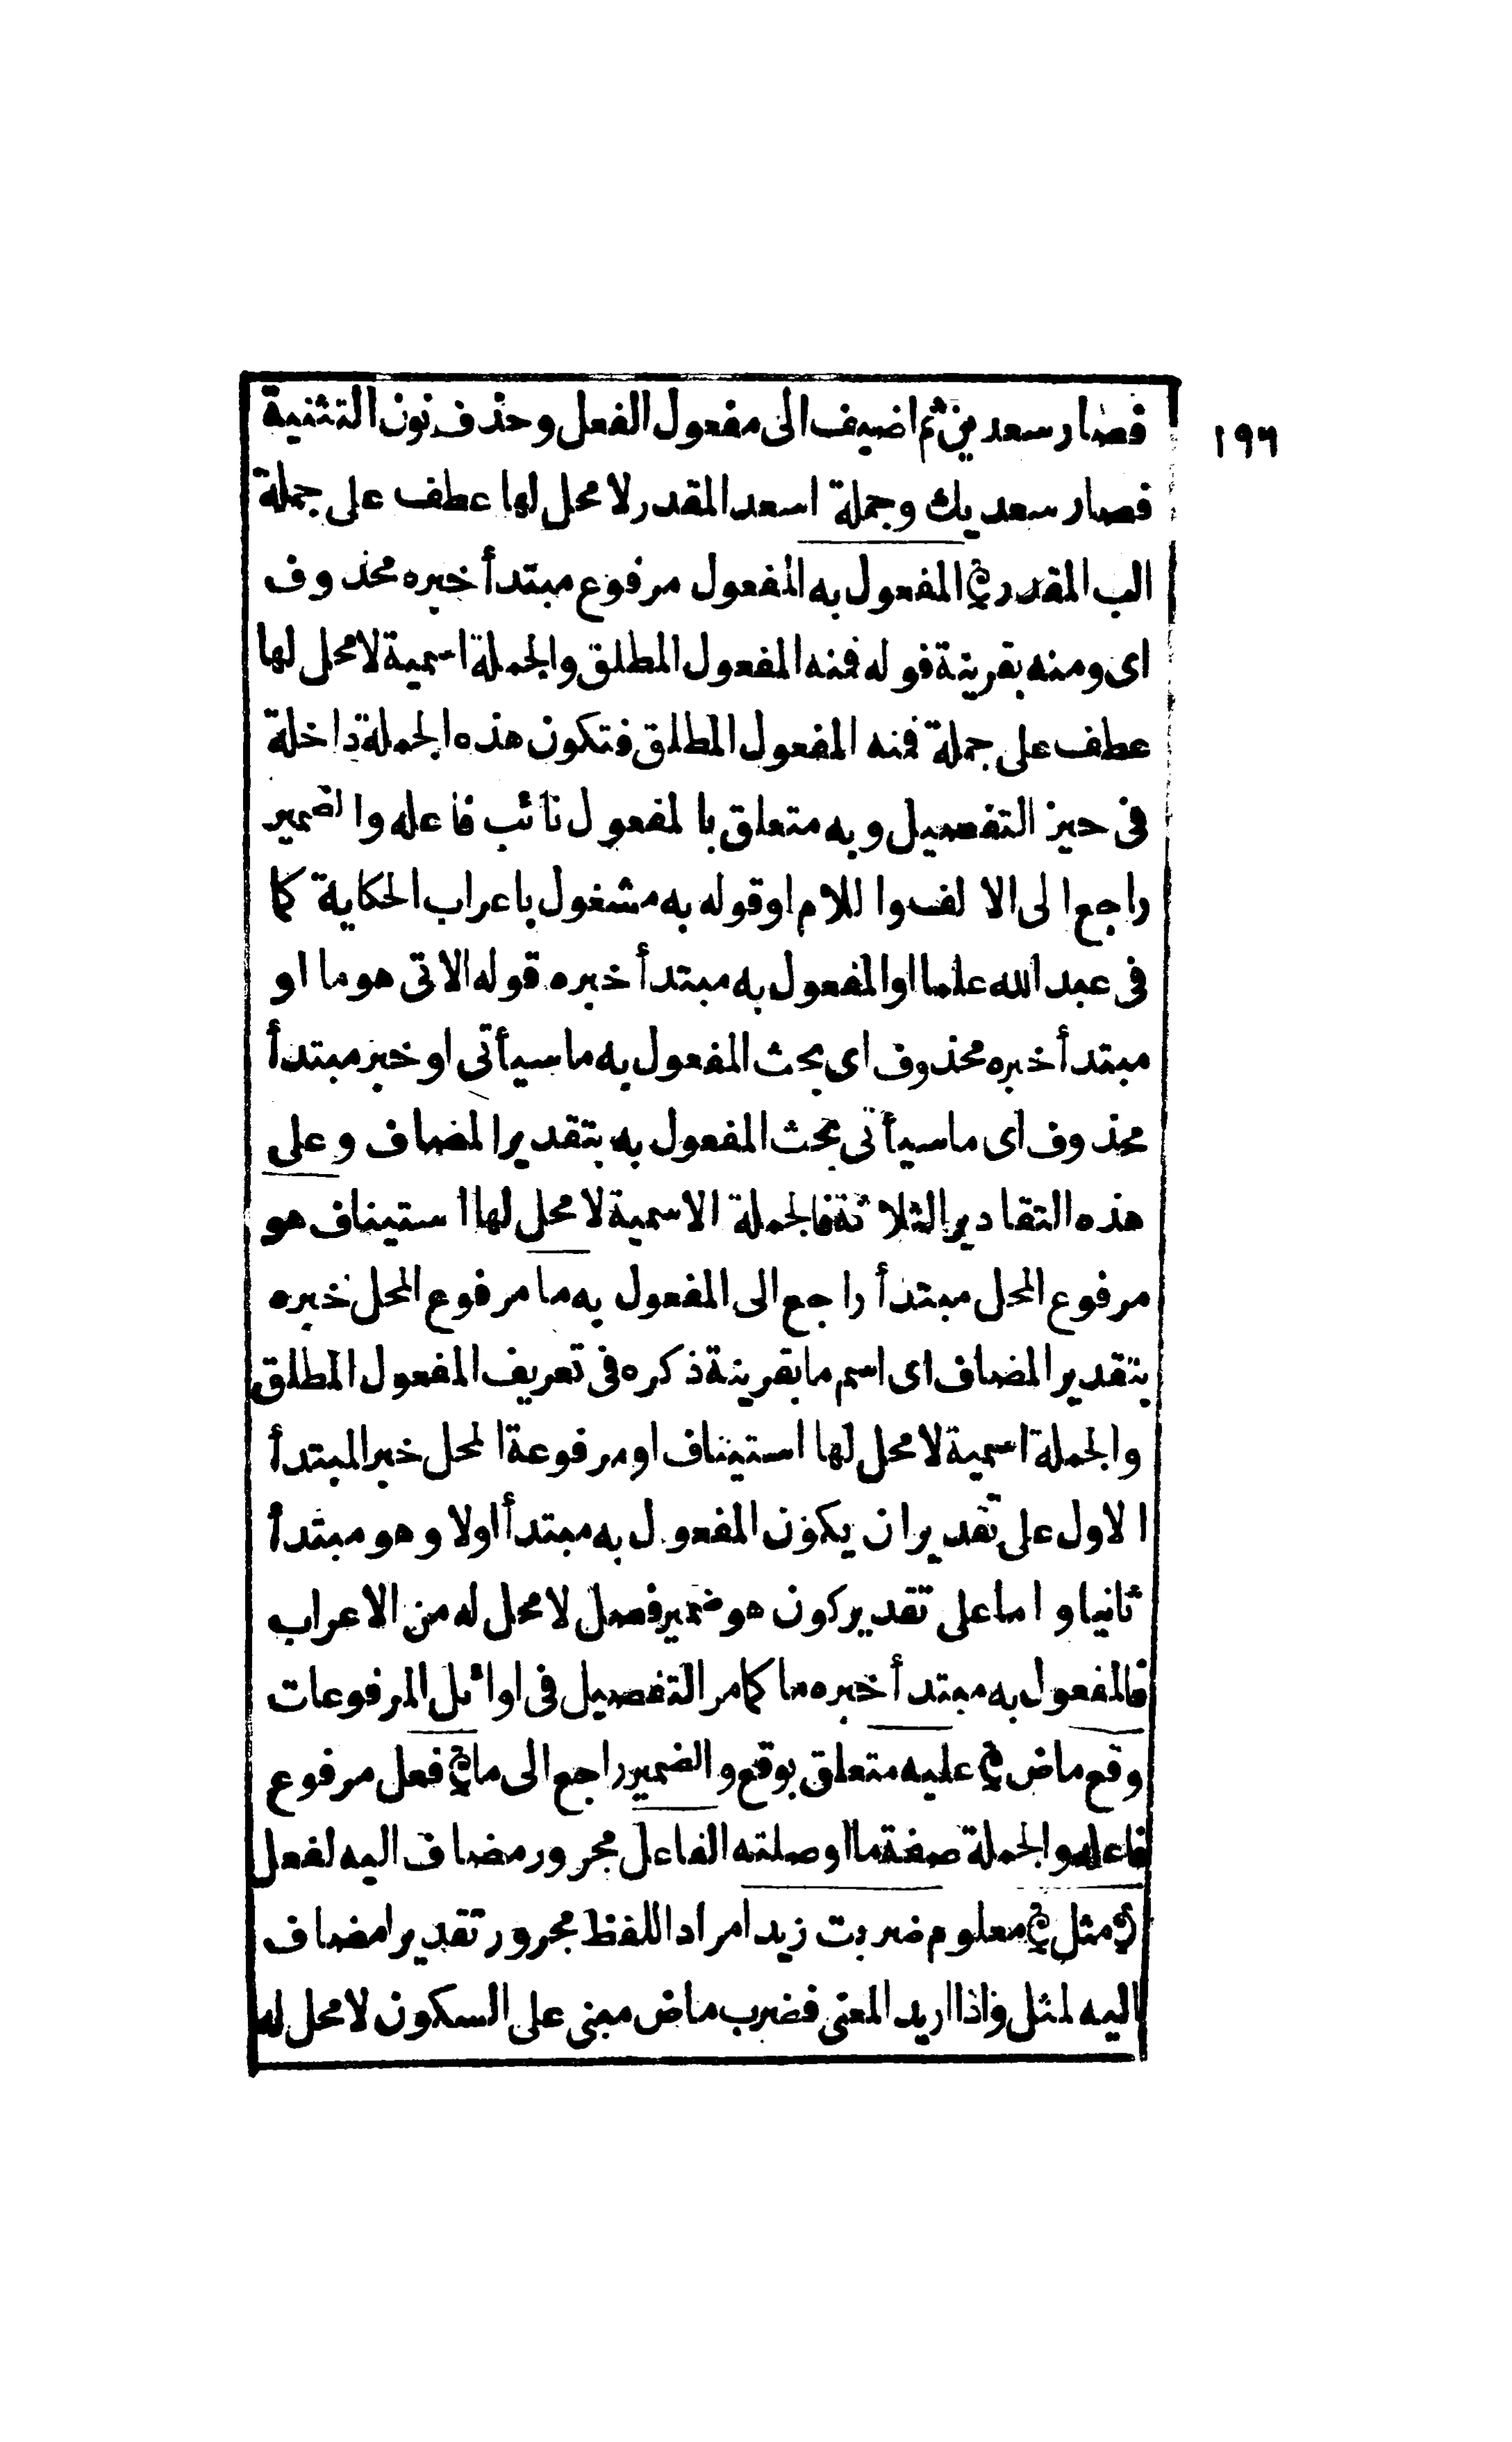 ١٩٦
فصار سعدين ثم اضيف الى مفعول الفعل وحذف نون التثنية
فصار سعديك وجملة اسعد المقدر لا محل لها عطف على جملة
الب المقدر المفعول به المفعول مرفوع مبتدأ خبره محذوف
اى ومنه بقرينة قوله فمنه المفعول المطلق والجملة اسمية لا محل لها
عطف على جملة فمنه المفعول المطلق فتكون هذه الجملة داخلة
فى حيز التفصيل وبه متعلق بالمفعول نائب فاعله والضمير
راجع الى الالف واللام او قوله به مشغول باعراب الحكاية كما
فى عبد الله علما او المفعول به مبتدأ خبره قوله الاتى هو ما او
مبتدأ خبره محذوف اى بحث المفعول به ما سيأتى او خبر مبتدأ
محذوف اى ما سيأتى بحث المفعول به بتقدير المضاف وعلى
هذه التقادير الثلاثة فالجملة الاسمية لا محل لها استيناف هو
مرفوع المحل مبتدأ راجع الى المفعول به ما مرفوع المحل خبره
بتقدير المضاف اى اسم ما بقرينة ذكره فى تعريف المفعول المطلق
والجملة اسمية لا محل لها استيناف او مرفوعة المحل خبر المبتدأ
الاول على تقدير ان يكون المفعول به مبتدأ اولا وهو مبتدأ
ثانيا واما على تقدير كون هو ضمير فصل لا محل له من الاعراب
فالمفعول به مبتدأ خبره ما كما مر التفصيل فى اوائل المرفوعات
وقع ماض عليه متعلق بوقع والضمير راجع الى ما فعل مرفوع
فاعله والجملة صفة ما او صلته الفاعل مجرور مضاف اليه لفعل
مثل معلوم ضربت زيدا مراد اللفظ مجرور تقديرا مضاف
اليه لمثل واذا اريد المعنى فضرب ماض مبنى على السكون لا محل له